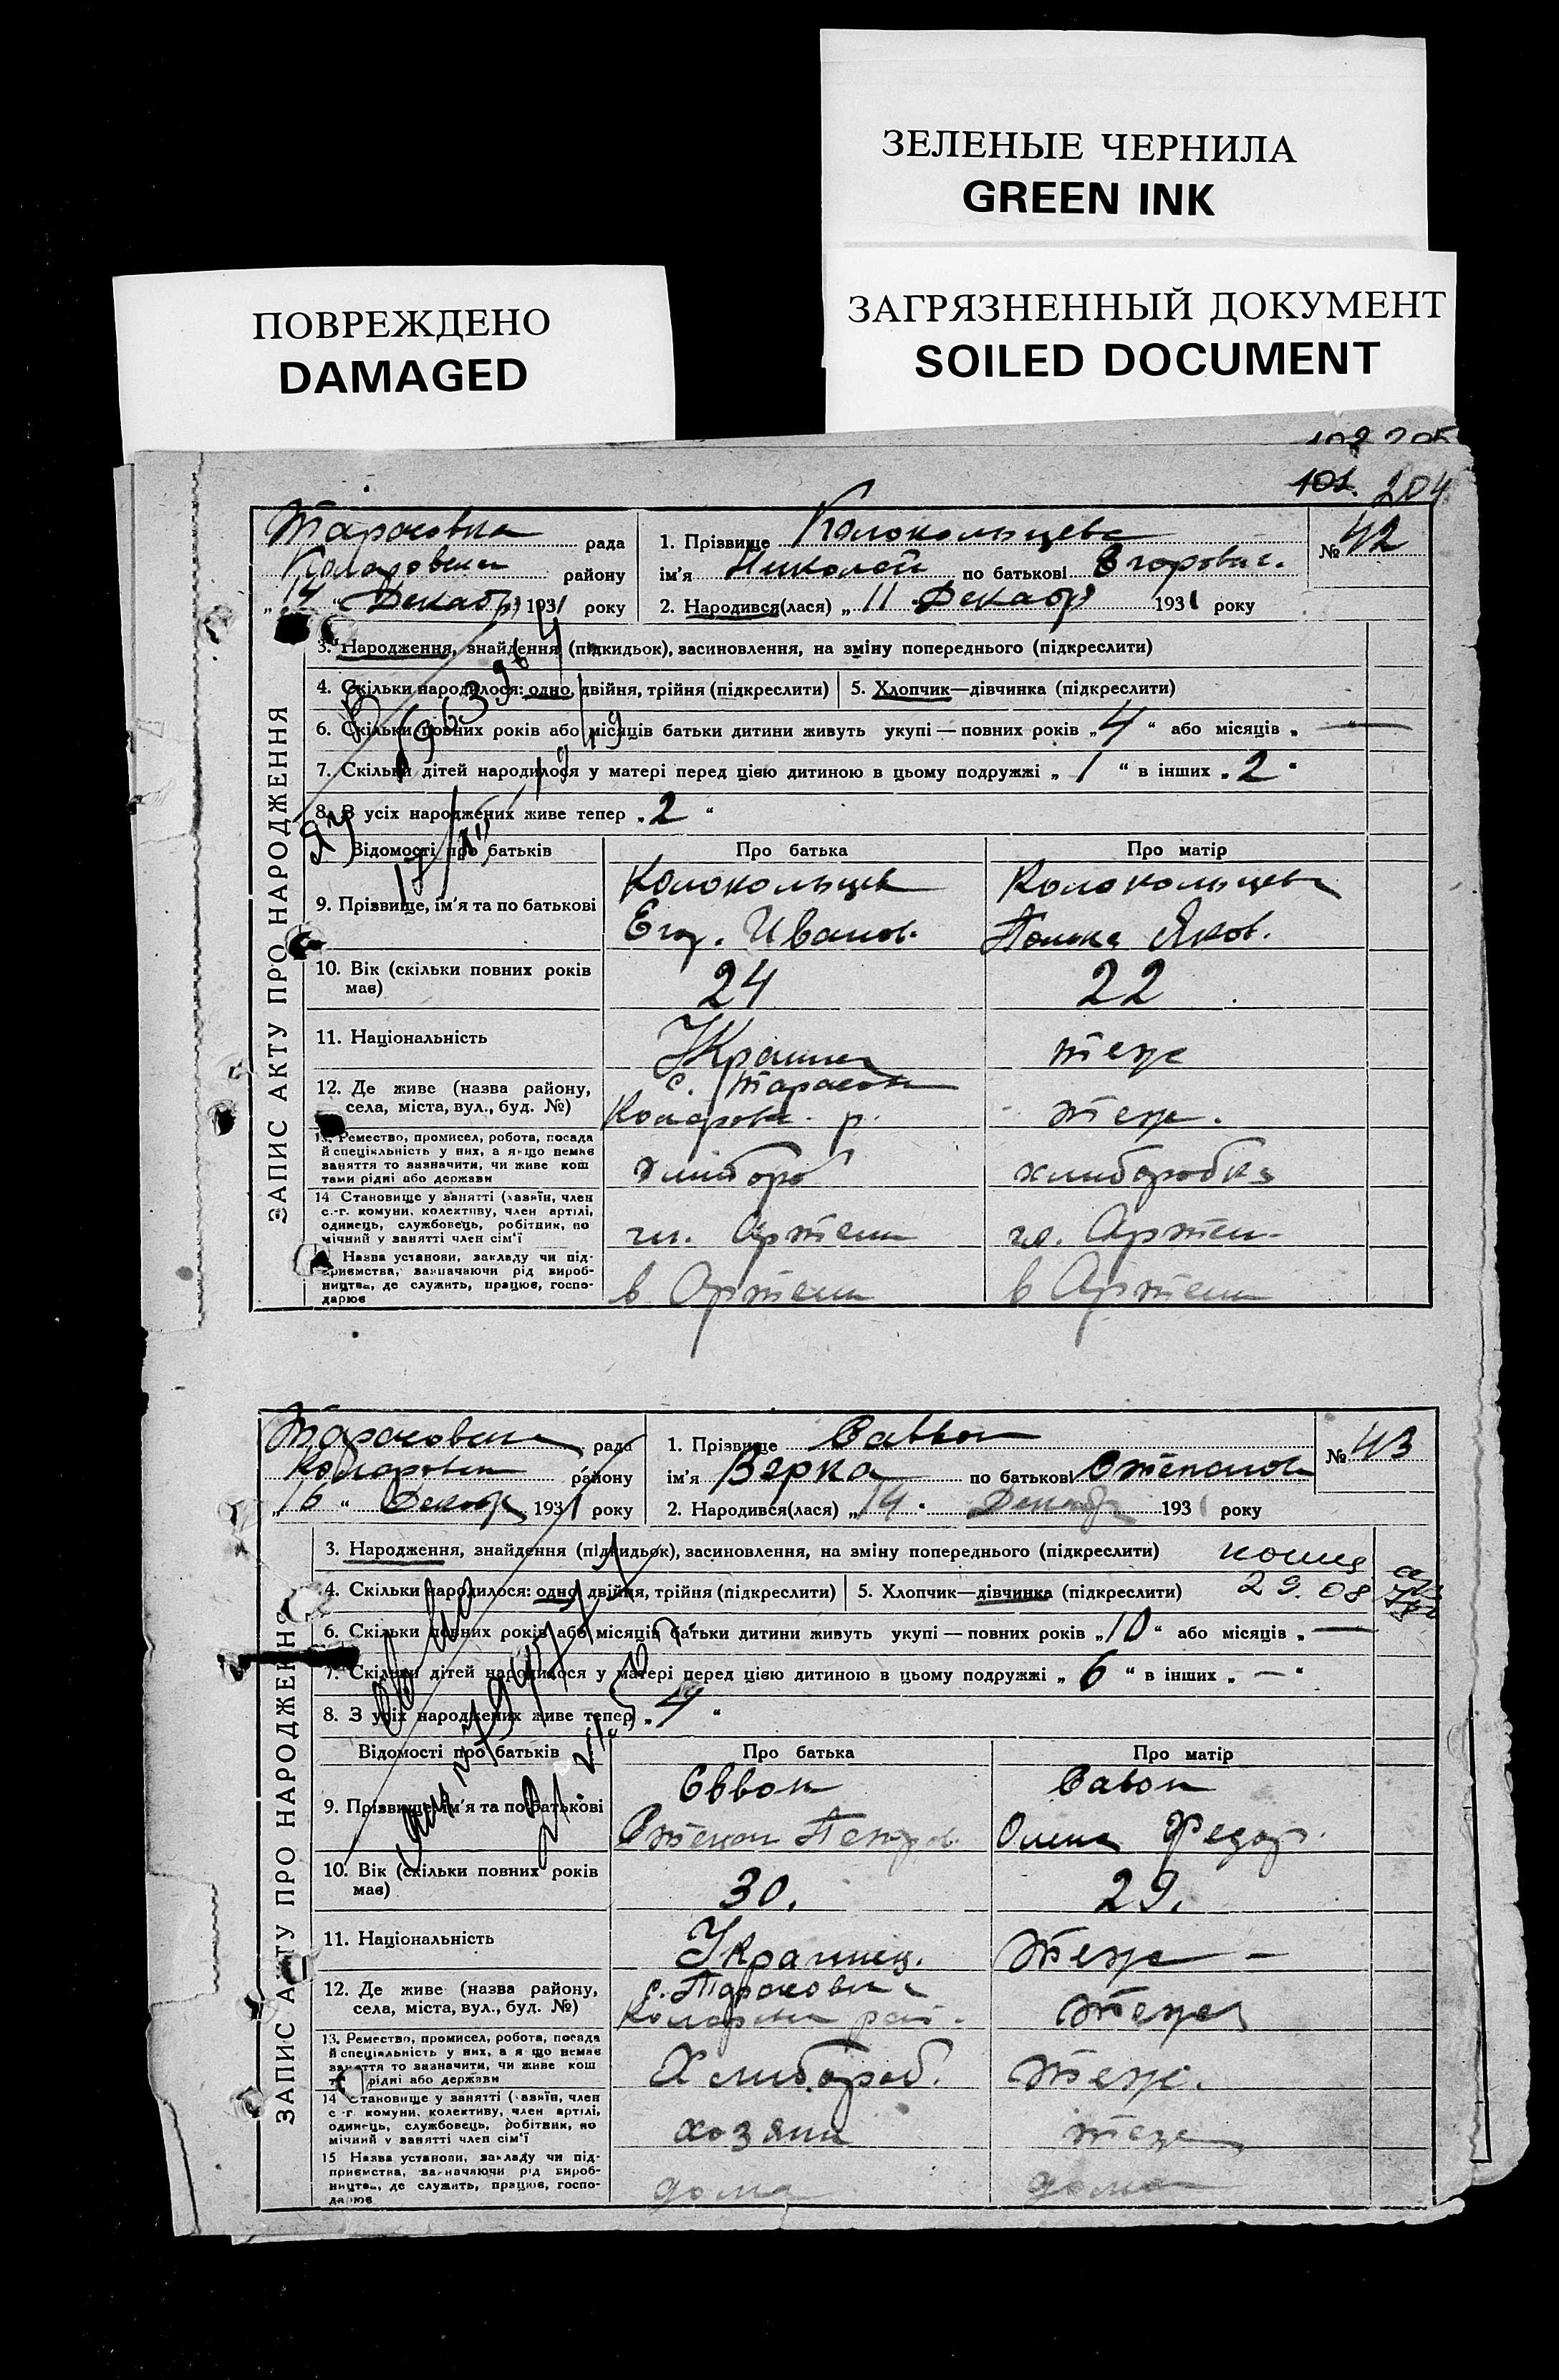 ЗЕЛЕНЫЕ ЧЕРНИЛА
GREEN INK
ЗАГРЯЗНЕННЫЙ ДОКУМЕНТ
SOILED DOCUMENT
ПОВРЕЖДЕНО
DAMAGED
101. 204
ЗАПИС АКТУ ПРО НАРОДЖЕННЯ
Тарасовка рада
району
„14" Декабр 1931 року
1. Прізвище Колокольцева
ім'я Николай по батькові Егорович.
№ 42
2. Народився(лася) „11 Декабр 1931 року
3. Народження, знайдення (підкидьок), засиновлення, на зміну попереднього (підкреслити)
4. Скільки народилося: одно, двійня, трійня (підкреслити) 5. Хлопчик—дівчинка (підкреслити)
6. Скільки повних років або місяців батьки дитини живуть укупі — повних років „4" або місяців „—"
7. Скільки дітей народилося у матері перед цією дитиною в цьому подружжі „1" в інших „2"
8. З усіх народжених живе тепер „2"
Відомості про батьків Про батька Про матір
9. Прізвище, ім'я та по батькові
Колокольцев Колокольцева
Егор. Иванов. Яков.
10. Вік (скільки повних років має) 24 22
11. Національність теж
12. Де живе (назва району, села, міста, вул., буд. №)
с. Тарасовка
р. теж.
13. Ремество, промисел, робота, посада й спеціяльність у них, а якщо немає заняття то зазначити, чи живе коштами рідні або держави
хлибороб хлиборобка
14 Становище у занятті (хазяїн, член с.-г. комуни, колективу, член артілі, одинець, службовець, робітник, помічний у занятті член сім'ї
чл. Артели чл. Артели
15 Назва установи, закладу чи підприємства, зазначаючи рід виробництва, де служить, працює, господарює
в Артели в Артели
ЗАПИС АКТУ ПРО НАРОДЖЕННЯ
рада
району
„16" Декабр 1931 року
1. Прізвище Саввон
ім'я Вэрка по батькові Степанов
№ 43
2. Народився(лася) „14" Декабр 1931 року
3. Народження, знайдення (підкидьок), засиновлення, на зміну попереднього (підкреслити)
4. Скільки народилося: одно, двійня, трійня (підкреслити) 5. Хлопчик—дівчинка (підкреслити)
29. 08
6. Скільки повних років або місяців батьки дитини живуть укупі — повних років „10" або місяців „—
7. Скільки дітей народилося у матері перед цією дитиною в цьому подружжі „6" в інших „—"
8. З усіх народжених живе тепер „4"
Відомості про батьків Про батька Про матір
9. Прізвище, ім'я та по батькові
Саввон Савон
Степан Петров. Олена Федор.
10. Вік (скільки повних років має) 30. 29.
11. Національність Украинец. теж —
12. Де живе (назва району, села, міста, вул., буд. №)
с. Тарасовка
рай. теж
13. Ремество, промисел, робота, посада й спеціяльність у них, а якщо немає заняття то зазначити, чи живе коштами рідні або держави
Хлибороб. теж.
14 Становище у занятті (хазяїн, член с.-г. комуни, колективу, член артілі, одинець, службовець, робітник, помічний у занятті член сім'ї
хозяин теж
15 Назва установи, закладу чи підприємства, зазначаючи рід виробництва, де служить, працює, господарює
дома дома